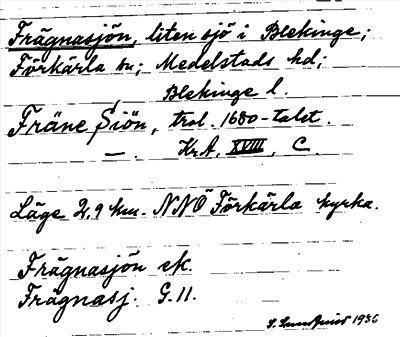 Frägnasjön, liten sjö i Blekinge;
Förkärla sn; Medelstads hd;
Blekinge l.
Fräne Siön, trol. 1680-talet.
— . KrA, XVIII, C.
Läge 2,9 km. NNÖ Förkärla kyrka.
Frägnasjön ek.
Frägnasj. G.11.
S. Lundquist 1936